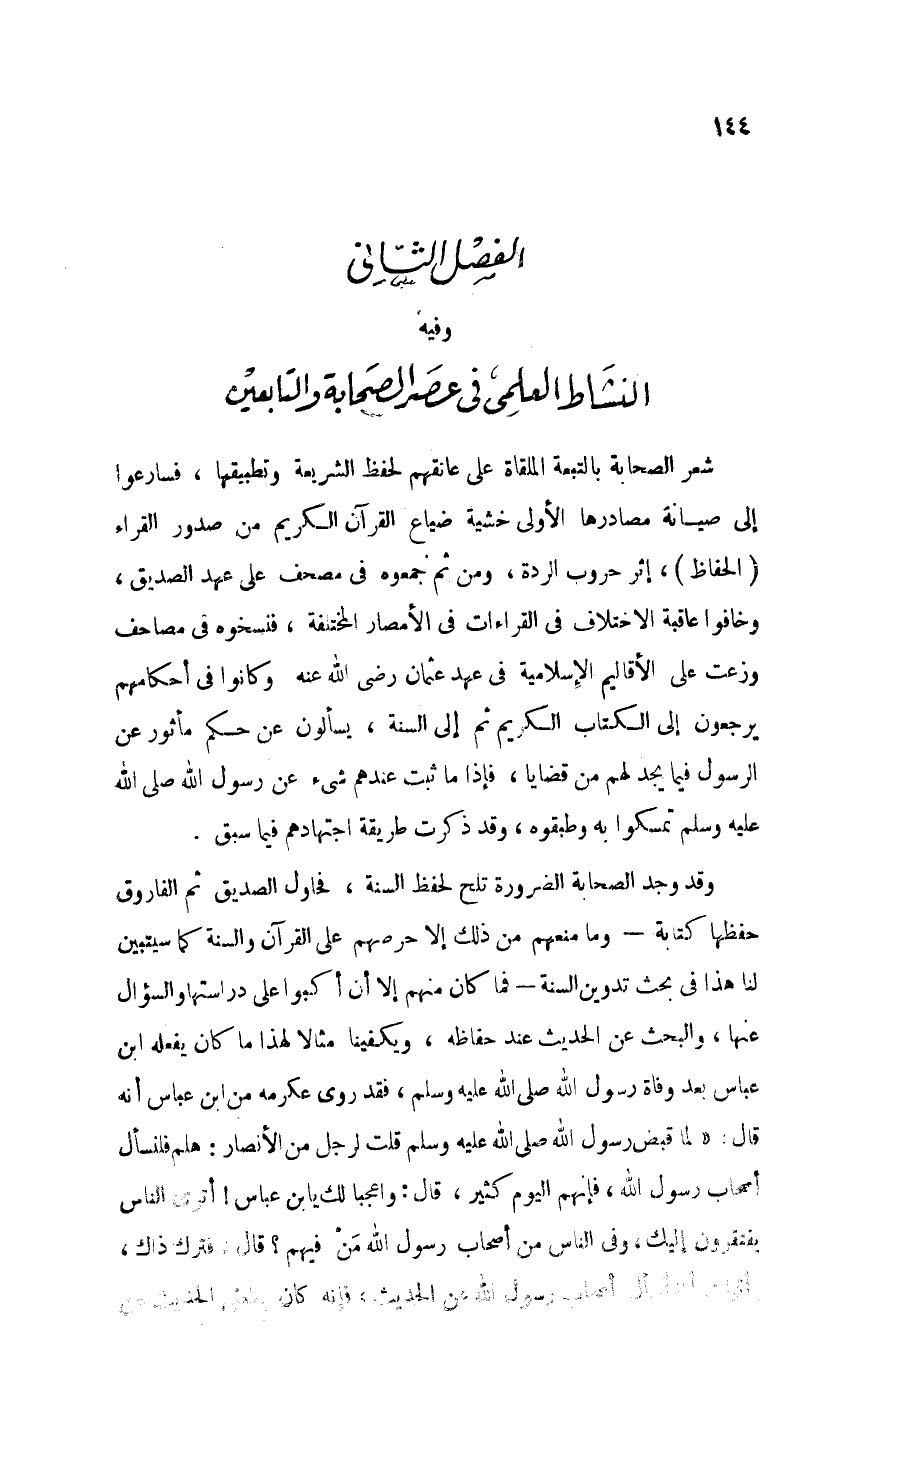 ١٤٤
الفصل الثاني
وفيه
النشاط العلمي في عصر الصحابة والتابعين
شعر الصحابة بالتبعة الملقاة على عاتقهم لحفظ الشريعة وتطبيقها ، فسارعوا
إلى صيـانة مصادرها الأولى خشية ضياع القرآن الـكريم من صدور القراء
( الحفاظ ) ، إثر حروب الردة ، ومن ثم جمعوه فى مصحف على عهد الصديق ،
وخافوا عاقبة الاختلاف فى القراءات فى الأمصار المختلفة ، فنسخوه فى مصاحف
وزعت على الأقاليم الإسلامية فى عهد عثمان رضى الله عنه وكانوا فى أحكامهم
يرجعون إلى الـكتاب الـكريم ثم إلى السنة ، يسألون عن حـكم مأثور عن
الرسول فيما يجد لهم من قضايا ، فإذا ما ثبت عندهم شىء عن رسول الله صلى الله
عليه وسلم تمسكوا به وطبقوه ، وقد ذكرت طريقة اجتهادهم فيما سبق .
وقد وجد الصحابة الضرورة تلح لحفظ السنة ، فحاول الصديق ثم الفاروق
حفظها كتابة — وما منعهم من ذلك إلا حرصهم على القرآن والسنة كما سيتبين
لنا هذا فى بحث تدوين السنة — فما كان منهم إلا أن أكبوا على دراستها والسؤال
عنها ، والبحث عن الحديث عند حفاظه ، ويكفينا مثالا لهذا ما كان يفعله ابن
عباس بعد وفاة رسول الله صلى الله عليه وسلم ، فقد روى عكرمه من ابن عباس أنه
قال : « لما قبض رسول الله صلى الله عليه وسلم قلت لرجل من الأنصار : هلم فلنسأل
أصحاب رسول الله ، فإنهم اليوم كثير ، قال : واعجبا لك يابن عباس ! أترى الناس
يفتقرون إليك ، وفى الناس من أصحاب رسول الله مَنْ فيهم ؟ قال : فترك ذاك ،
أصحاب رسول الله عن الحديث ، فإنه كان الحديث عن